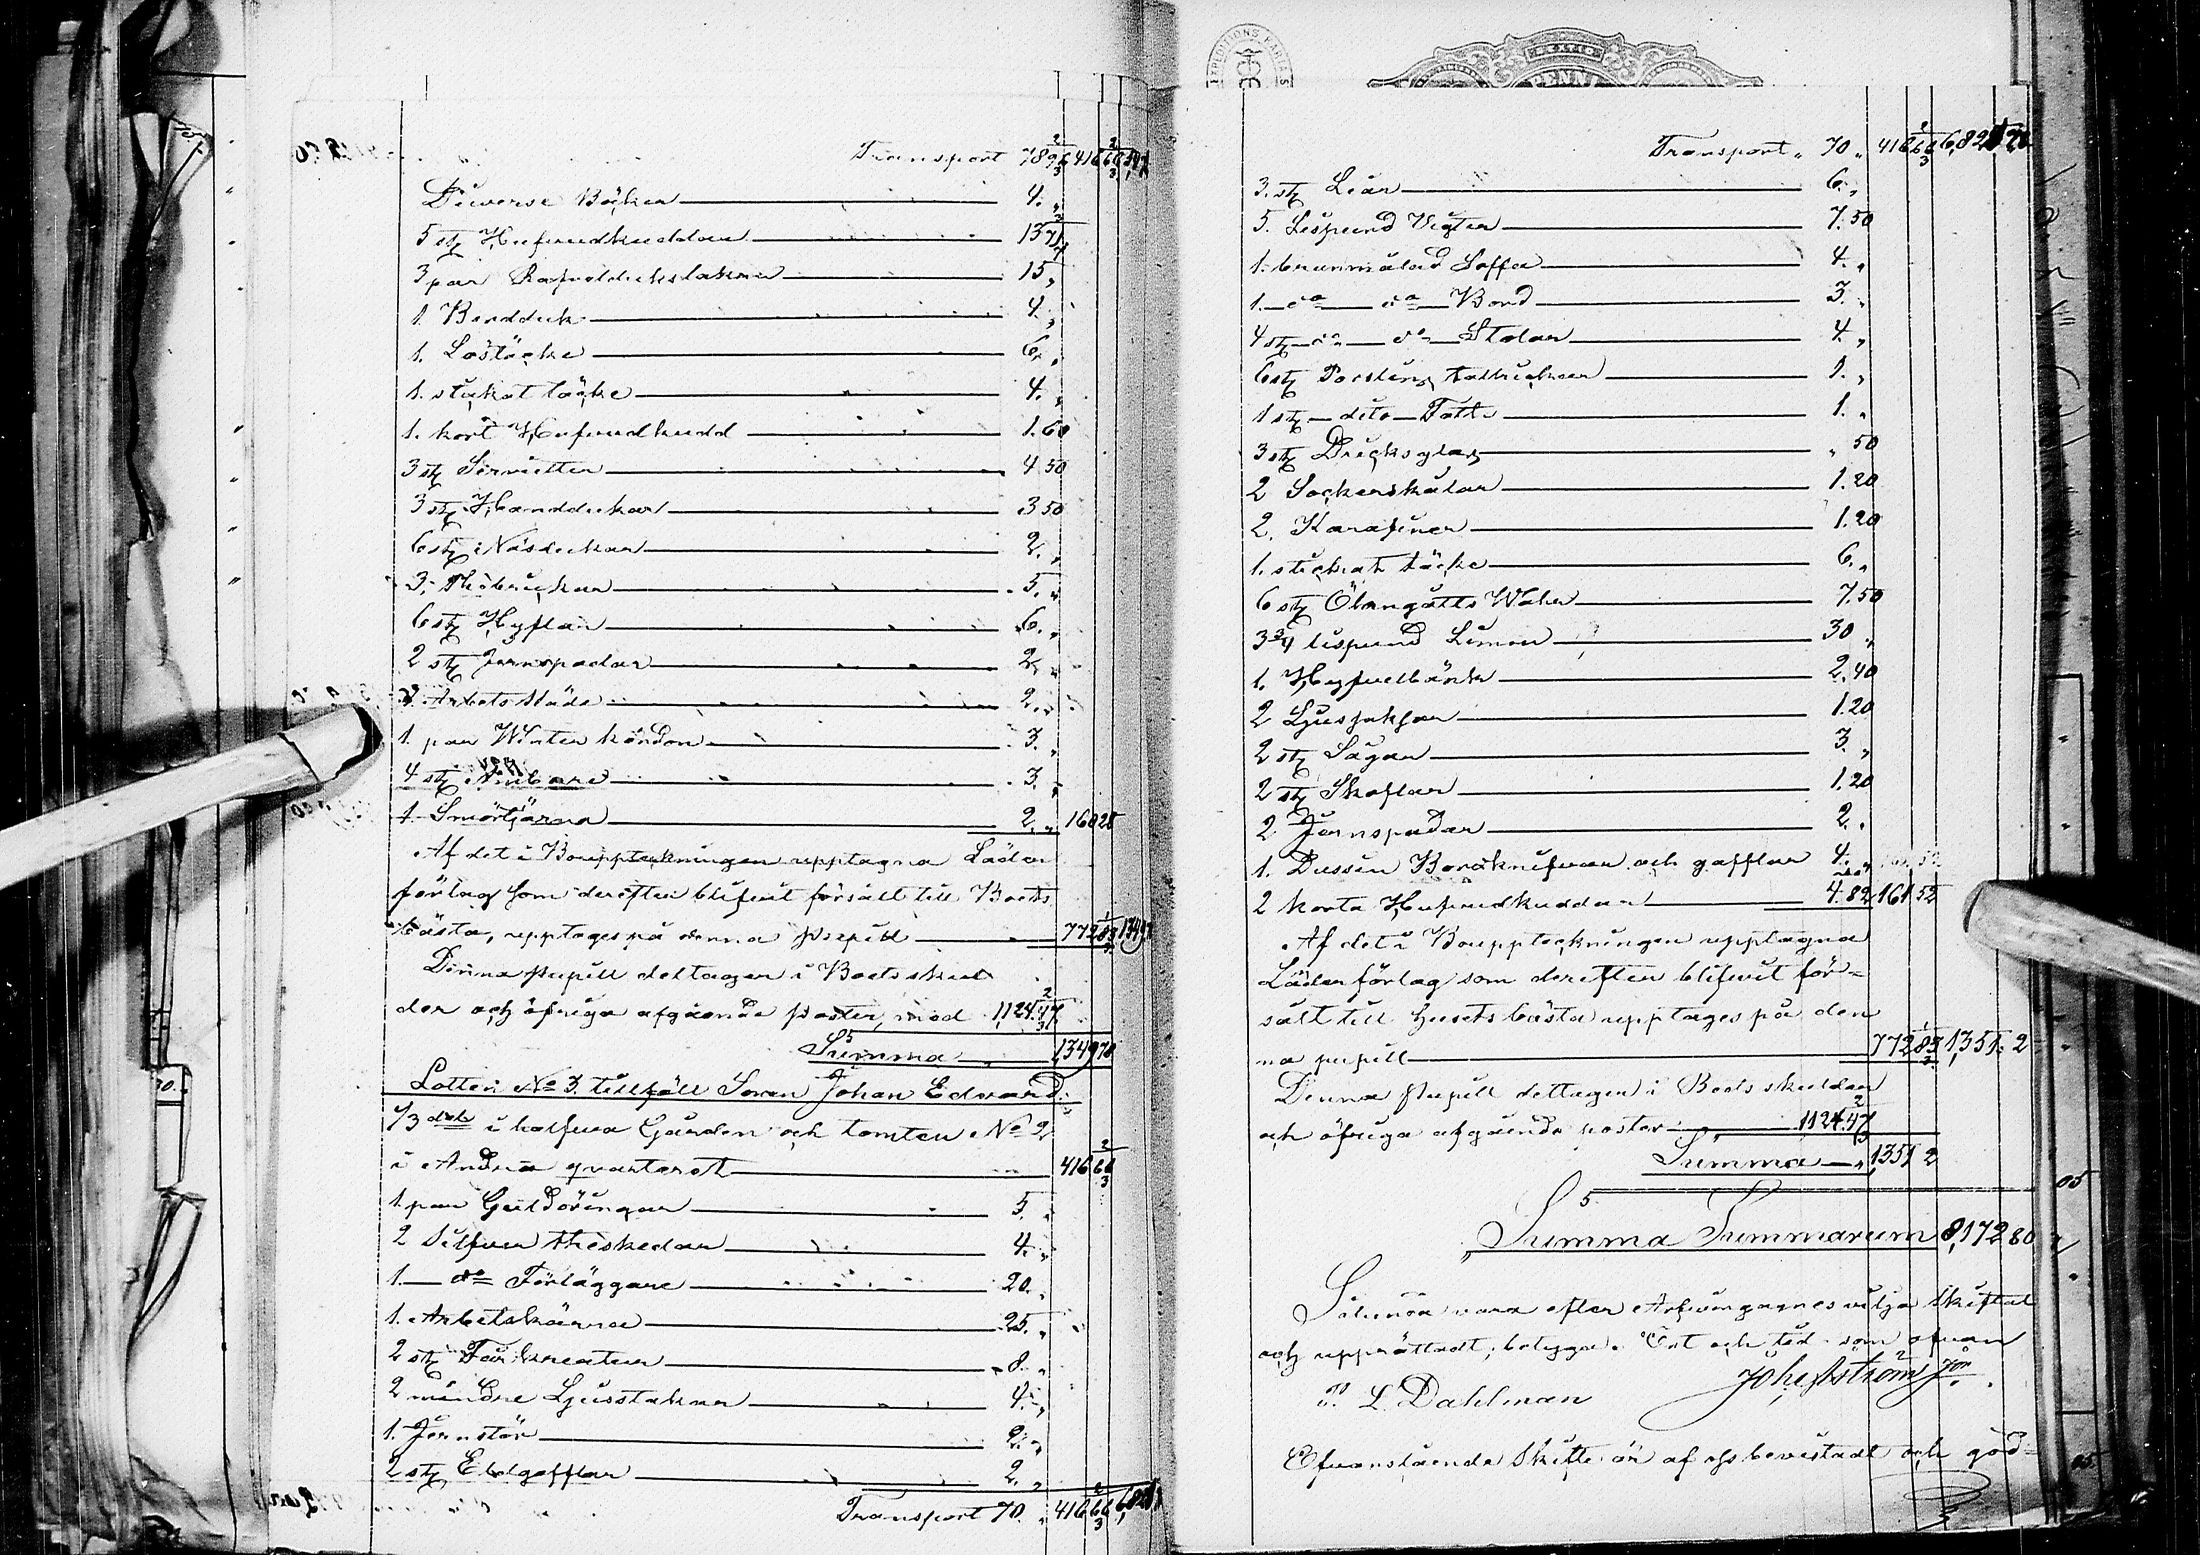 Transport 78 96 2/3 416 66 2/3
Diverse Böcker 4. "
5 stz Hufvudkuddar 13
3 par Rafveldukslakan 15 "
1. Bordduk 4. "
1. Lostäcke 6. "
1. stickat täcke 4. "
1. kort Hufvudkudd 1.60
3 stz Servietter 4 50
3 stz Handdukar 3 50
6 stz Näsdukar 2. "
3. Thebrickar 5. "
6 stz Hyflar 6. "
2 stz Jernspadar 2. "
2 Arbets släde 2. "
1. par Winter kördon 3. "
4 stz Ämbare 3. "
1. Smörtjärna 2. " 160 28
Af det i Boupptekningen upptagna Läder
förlag som derefter blifvit försålt till Boets
bästa, upptages på denna pupill 772 83 1/3
Denna pupill deltager i Boets skul
der och öfriga afgående poster med 1,124.47 2/3
Summa 1,349 78
Lotten No 3. tillföll Sonen Johan Edvard.
1/3 del i halfva Gården och tomten No 9
i Andra quarteret 416 66 2/3
1 par Guldöringar 5. "
2 Silfver théskedar 4. "
1. do Förläggare 20. "
1. Arbetskärra 25. "
2 stz Får kreatur 8. "
2 mindre Ljusstakar 4. "
1. Jernstör 2. "
2 stz Eldgafflar 2. "
Transport 70. " 416 66 2/3
Transport " 70 " 416 66 2/3
3. stz Liar 6. "
5. Lispund Vigter 7.50
1. brunmålad Soffa 4. "
1. do do Bord 3. "
4 stz do do Stolar 4. "
6 stz Porslins tallrickar 1. "
1 stz dito Fatt 1. "
3 stz Dricksglas " 50
2 Sockerskålar 1.20
2. Karafiner 1.20
1. stickat täcke 6. "
6 stz Ölangåtts Wahr 7.50
3 3/4 lispund Liner 30 "
1. Hyfvelbänk 2.40
2 Ljussaksar 1.20
2 stz Sågar 3. "
2 stz Skoflar 1.20
2 Jernspadar 2. "
1. Dussin Bordknifvar och gafflar 4. "
2 korta Hufvudkuddar 4.82 161 52
Af det i Bouppteckningen upptagna
Läderförlag som derefter blifvit för=
sålt till husets bästa upptages på den
na pupill 772 83 1/3 1,351. 2
Denna pupill deltager i Boets skulder
och öfriga afgående poster 1124.47 2/3
Summa " 1351 2
Summa Summarum 8,172 80
Sålunda vara efter Arfvingarnes vilja skiftat
och upprättadt, betyga. Ort och tid som ofvan
P. L. Dahlman Joh. Åström Jor.
Ofvanstående Skifte är af oss bevistadt och god=